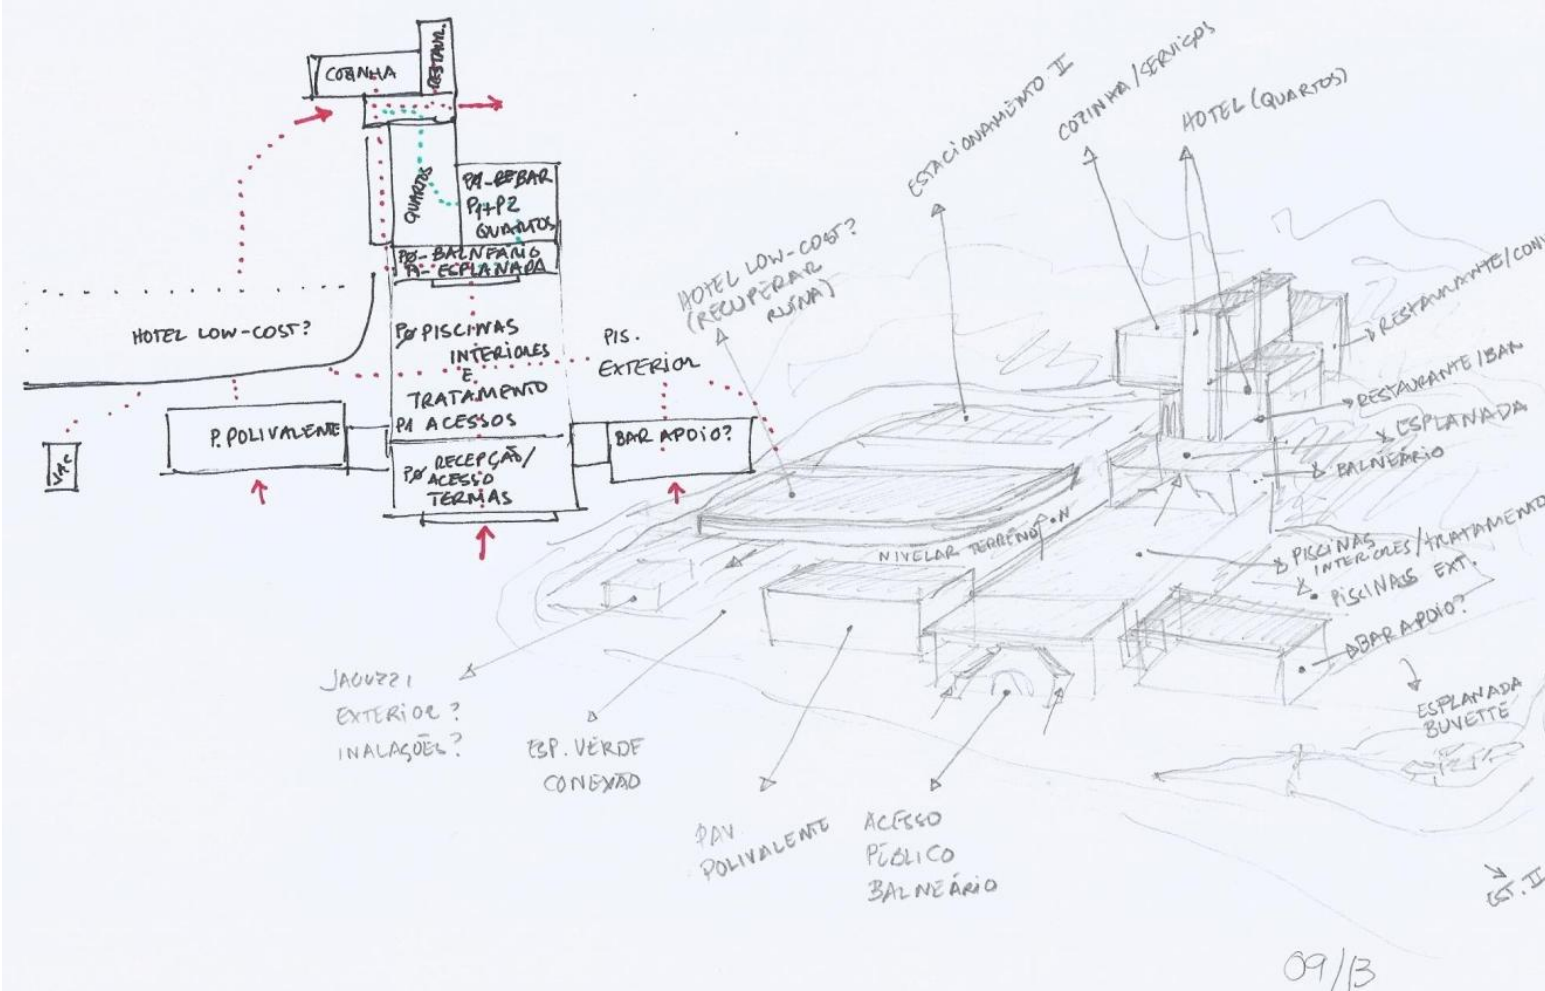 COZINHA
RESTAUR.
QUARTOS
P1+P2
QUARTOS
PØ-BALNEÁRIO
P1-ESPLANADA
HOTEL LOW-COST?
PØ PISCINAS
INTERIORES
E
TRATAMENTO
P1 ACESSOS
PIS.
EXTERIOR
P. POLIVALENTE
BAR APOIO?
PØ RECEPÇÃO/
ACESSO
TERMAS
ESTACIONAMENTO II
COZINHA/SERVIÇOS
HOTEL (QUARTOS)
HOTEL LOW-COST?
(RECUPERAR
RUÍNA)
RESTAURANTE/CONV
RESTAURANTE/BAR
ESPLANADA
BALNEÁRIO
NIVELAR TERRENO
PISCINAS
INTERIORES/TRATAMENTO
PISCINAS EXT.
BAR APOIO?
ESPLANADA
BUVETTE
JACUZZI
EXTERIOR?
INALAÇÕES?
ESP. VERDE
CONEXÃO
PAV.
POLIVALENTE
ACESSO
PÚBLICO
BALNEÁRIO
EST. II
09/13